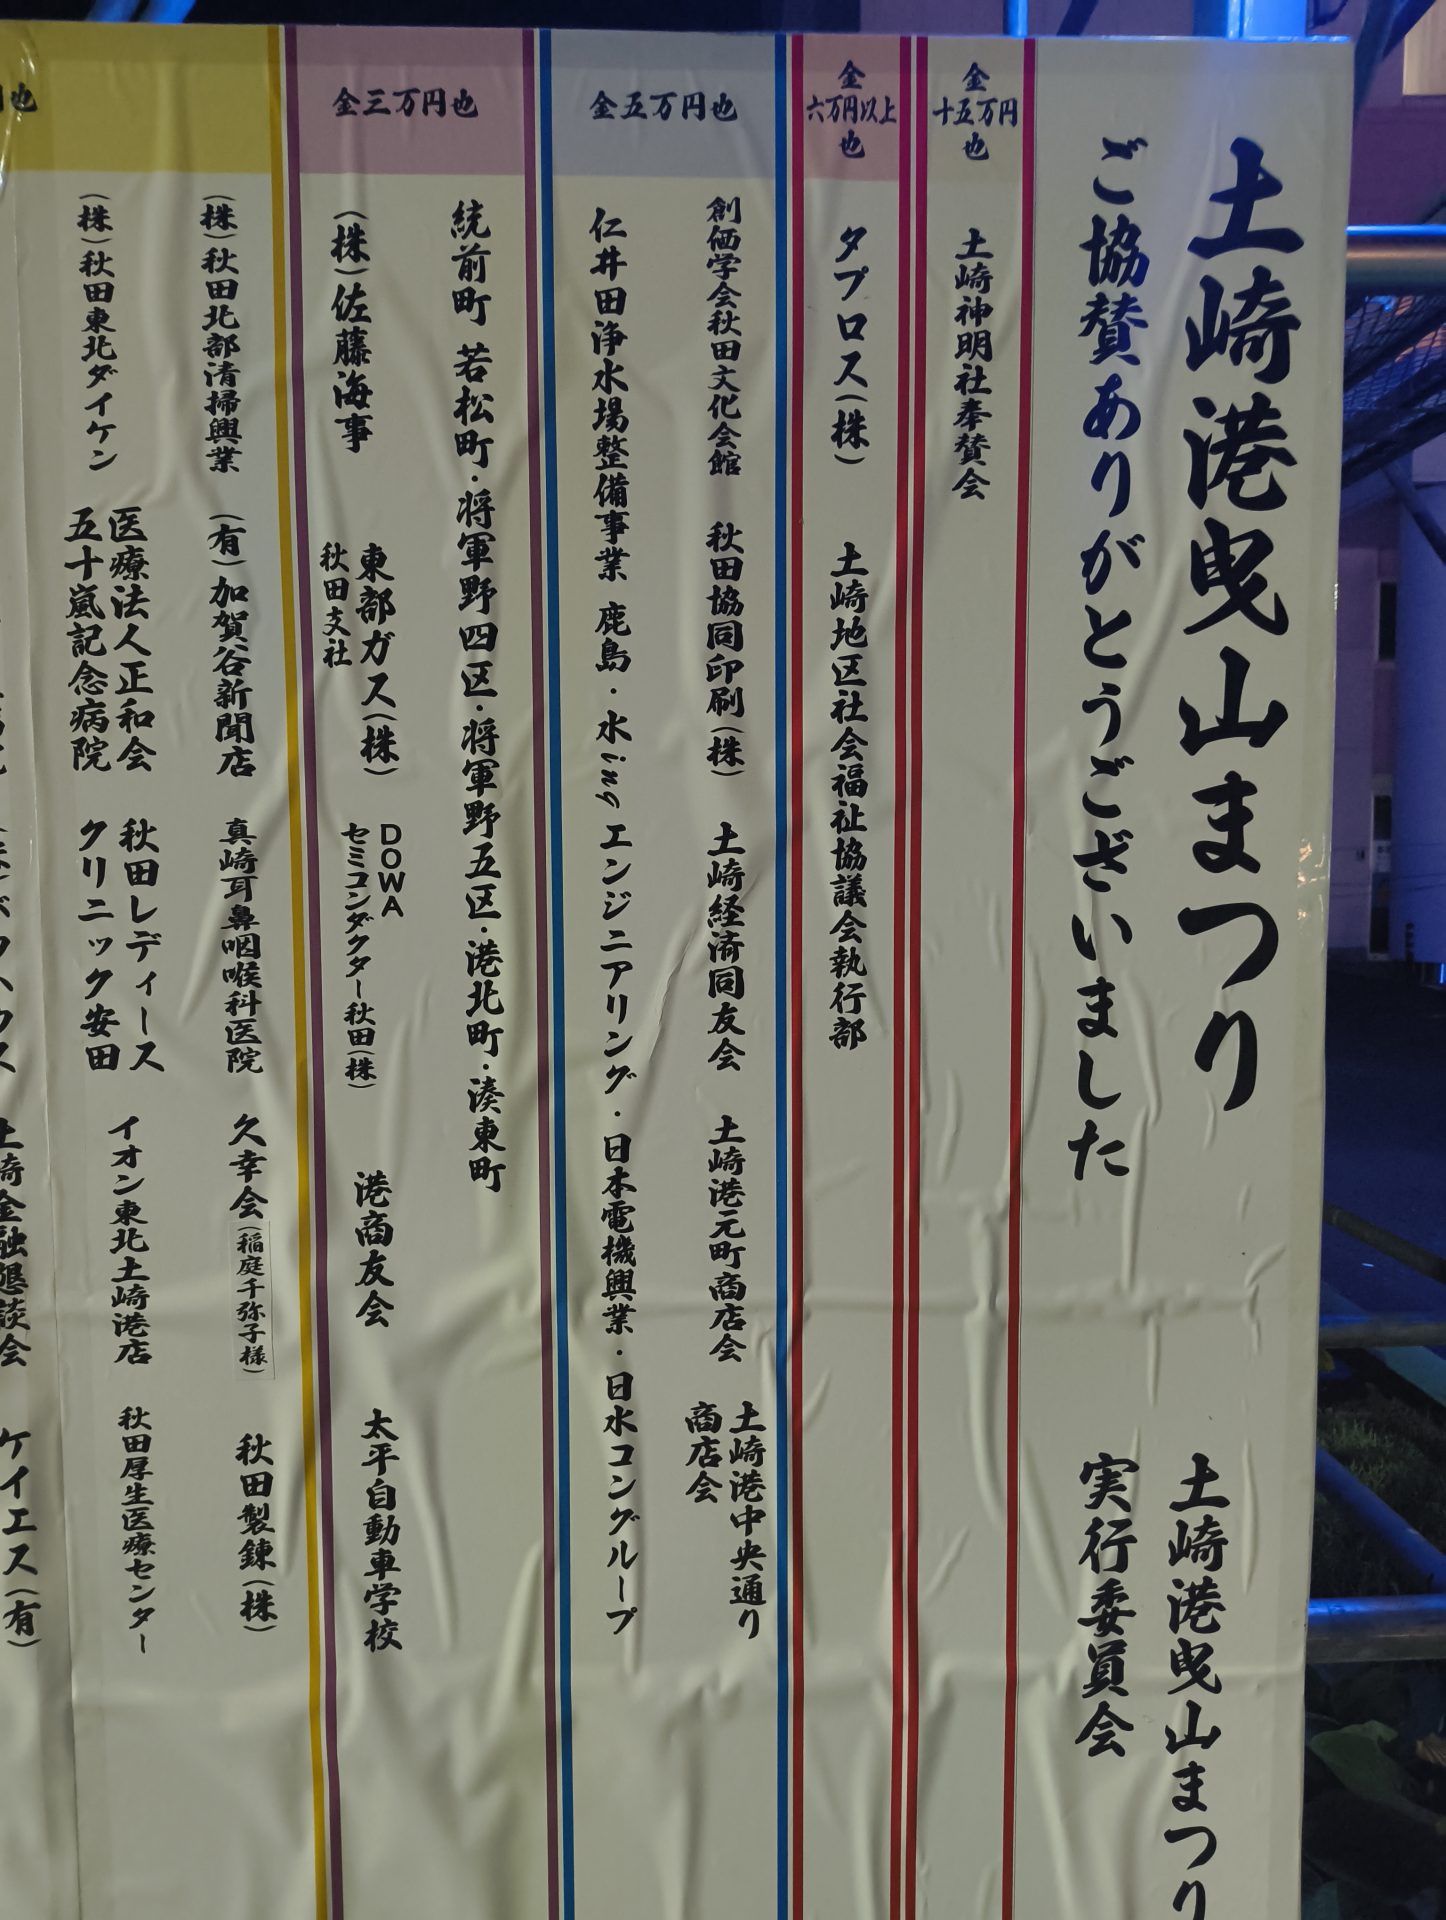 土崎港曳山まつり
ご協賛ありがとうございました
土崎港曳山まつり
実行委員会
金十五万円也
土崎神明社奉賛会
金六万円以上也
タプロス(株)
土崎地区社会福祉協議会執行部
金五万円也
創価学会秋田文化会館
秋田協同印刷(株)
土崎経済同友会
土崎港元町商店会
土崎港中央通り
商店会
仁井田浄水場整備事業 鹿島・水ingエンジニアリング・日本電機興業・日水コングループ
金三万円也
統前町 若松町・将軍野四区・将軍野五区・港北町・湊東町
(株)佐藤海事
東部ガス(株)
秋田支社
DOWA
セミコンダクター秋田(株)
港商友会
太平自動車学校
也
(株)秋田北部清掃興業
(有)加賀谷新聞店
真崎耳鼻咽喉科医院
久幸会(稲庭千弥子様)
秋田製錬(株)
(株)秋田東北ダイケン
医療法人正和会
五十嵐記念病院
秋田レディース
クリニック安田
イオン東北土崎港店
秋田厚生医療センター
土崎金融懇談会
ケイエス(有)